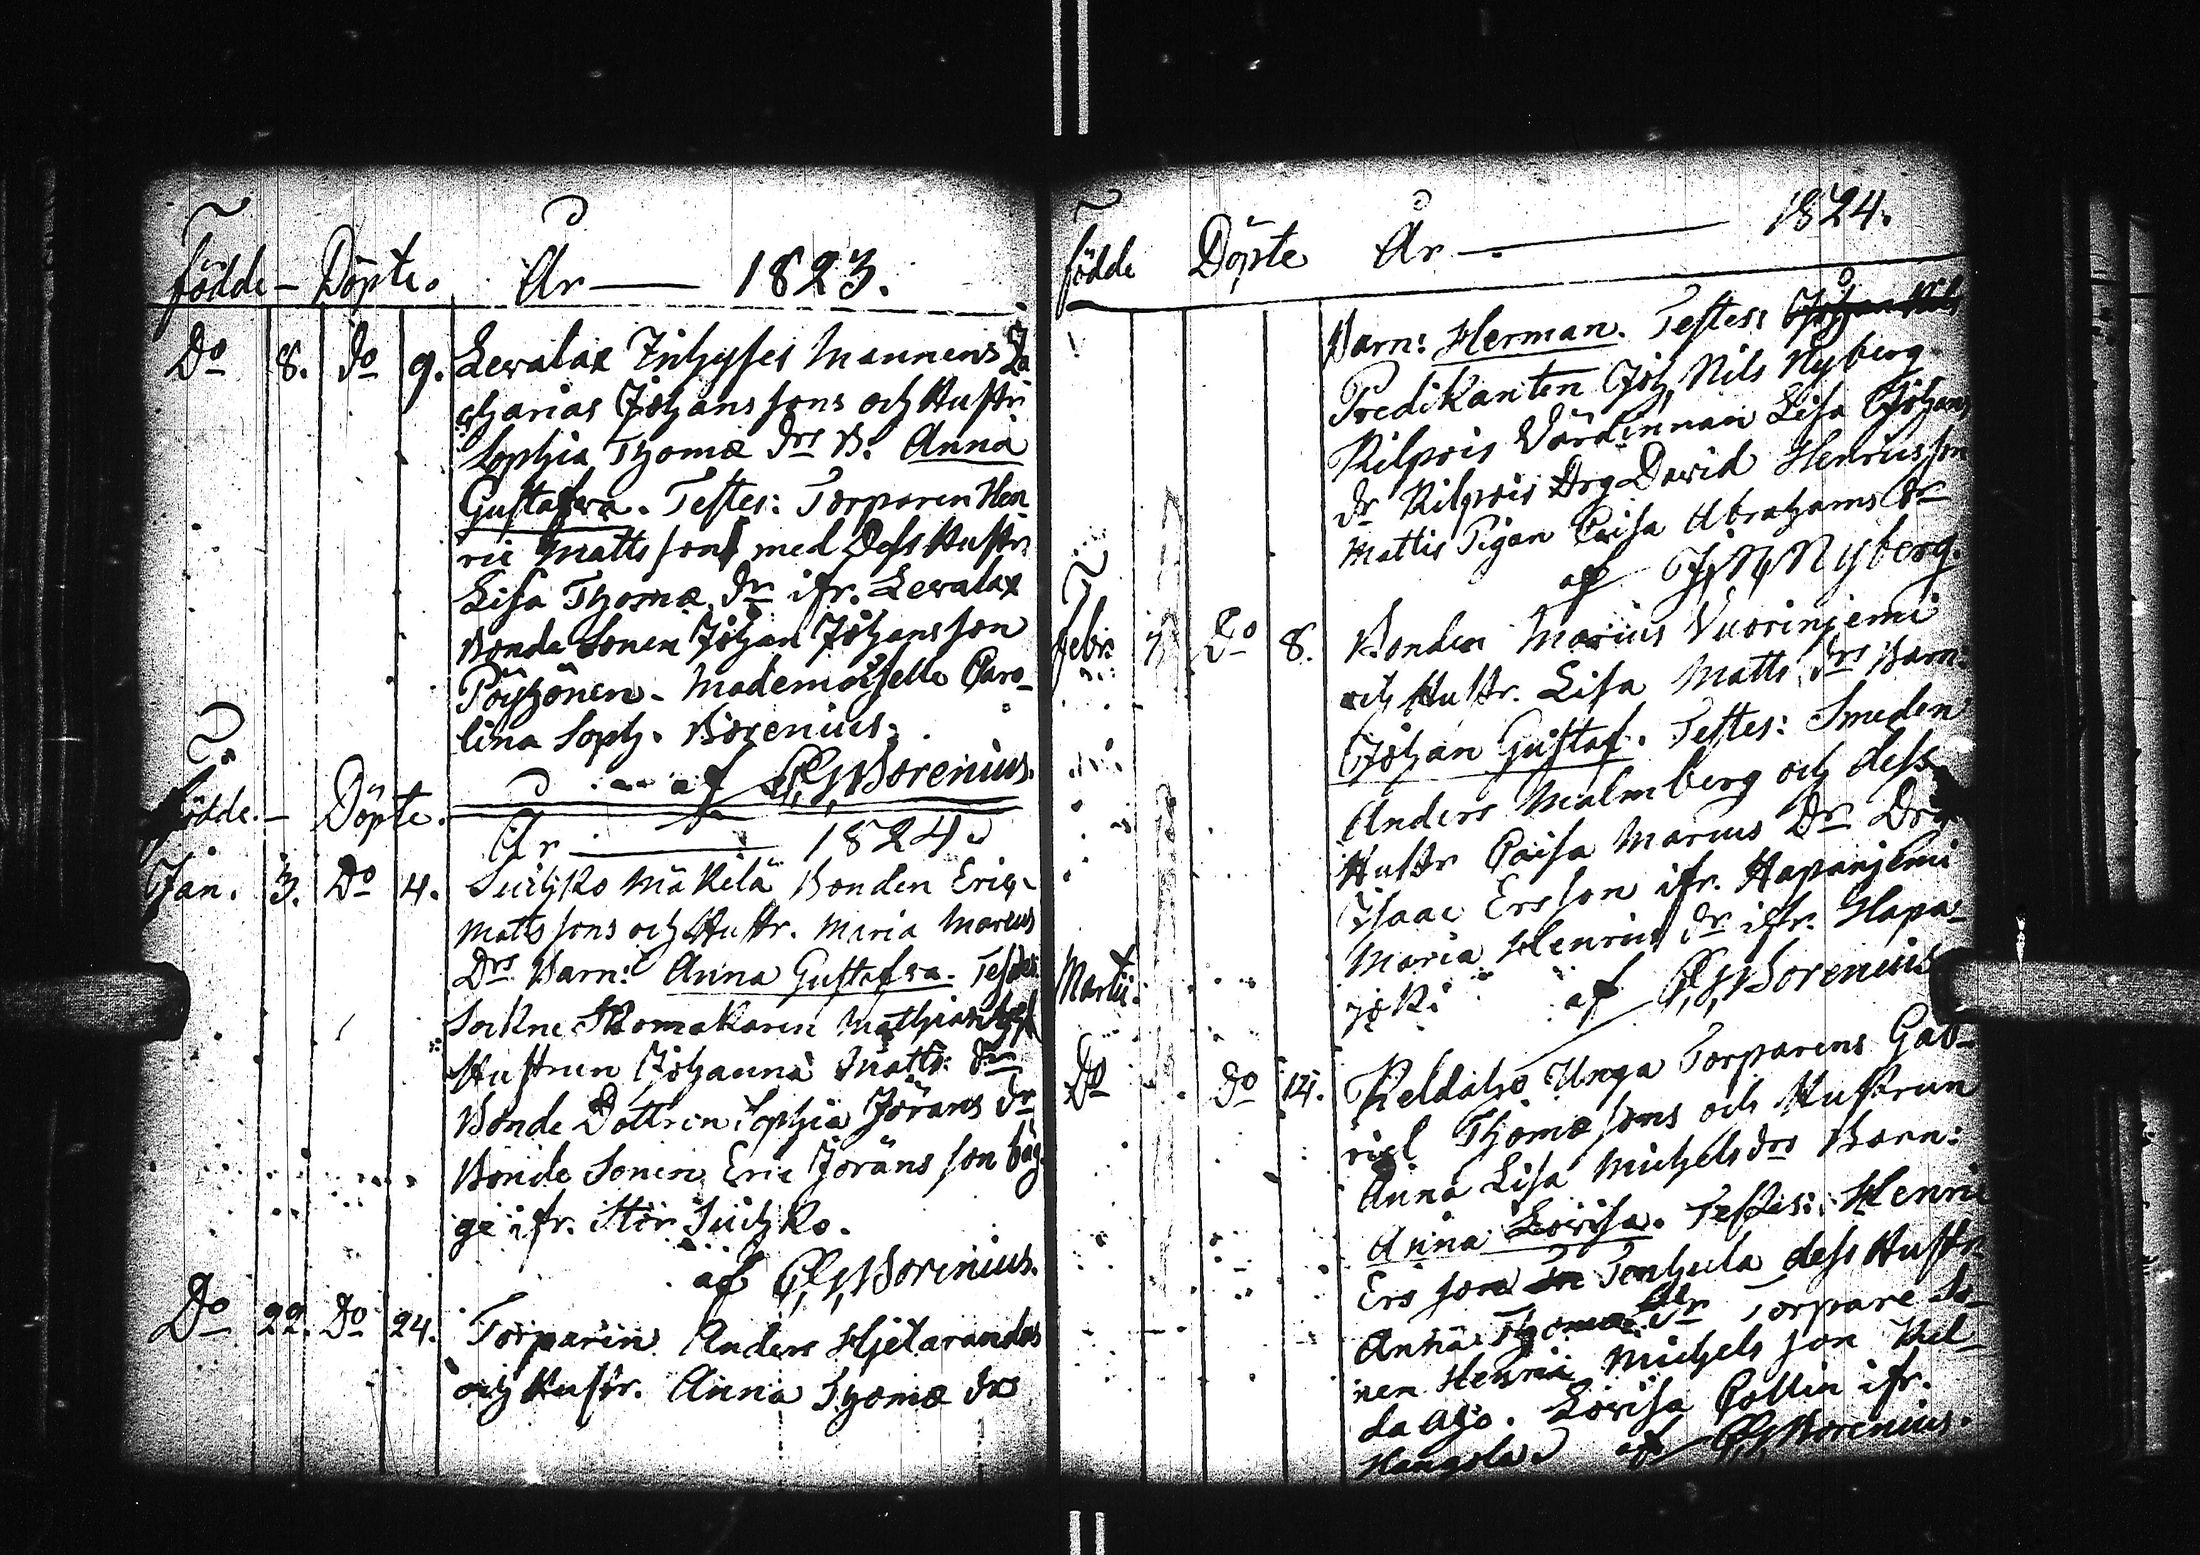 födde – Döpte. År — 1823.
Do 8. do 9. Levalax Inhyses Mannens Za
charias Johanssons och Hustr
Sophia Thomæ drs B. Anna
Gustafva. Testes: Torparen Hen
ric Matts son med Dess Hustr
Lisa Thomæ dr ifr. Levalax
Bonde Sonen Johan Johansson
Pöyhönen – Mademoiselle Caro-
lina Soph. Borenius.
af Borenius.
födde. – Döpte. År — 1824.
Jan. 3. Do 4. Suihko Mäkilä Bonden Eric
Matts sons och Hustr. Maria Marcus
Drs Barn: Anna Gustafva. Testes
Sockne Skomakaren Mathias
Hustrun Johanna Matts dr
Bonde Dottren Sophia Jörans dr
Bonde Sonen Eric Jörans son båg
ge ifr. Stor Suihko.
af Borenius.
Do 22. Do 24. Torparen Anders Hjetarandas
och Hustr. Anna Thomæ drs
födde Döpte År — 1824.
Barn: Herman. Testes:
Predikanten Joh. Nils Nyberg
Kilpois Värdinnan Lisa Johans
dr Kilpois Drg David Henricsson
Mattis Pigan Caisa Abrahams dr
af J. N. Nyberg.
Febr. 7 Do 8. Bonden Marius Vuorinjemi
och Hustr. Lisa Matts drs Barn
Johan Gustaf. Testes: Smeden
Anders Malmberg och dess
Hustr Caisa Marcus Dr Drg
Isaac Ersson ifr. Hapanjemi
Maria Henrics dr ifr. Hapa-
joki af Borenius
Martii
Do do 14. Keldaho Unga Torparens Gab-
riel Thomæ sons och Hustrun
Anna Lisa Michels drs Barn:
Anna Lovisa. Testes: Henric
Ers son Tenhula dess Hustr
Anna Thomæ Dr Torpare So-
nen Henric Michels son Kel-
da aho. Lovisa Collin ifr.
Hangsla. af Borenius.